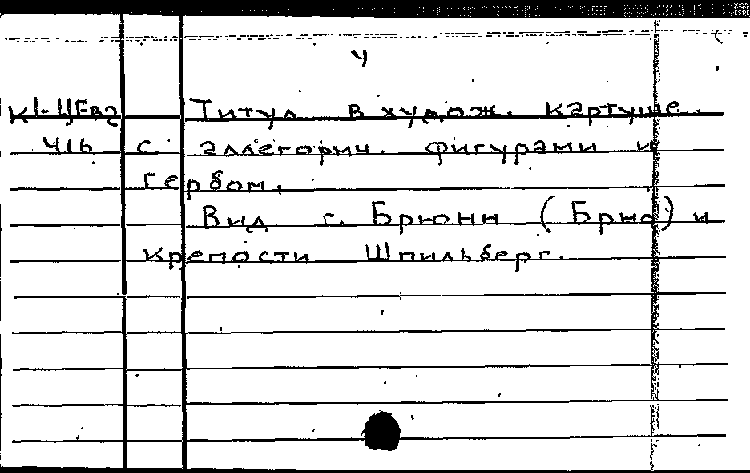 4
К1-ЦЕв2 Титул в худож. картуше
416 с аллегорич. фигурами и
гербом.
Вид г. Брюнн (Брно) и
крепости Шпильберг.